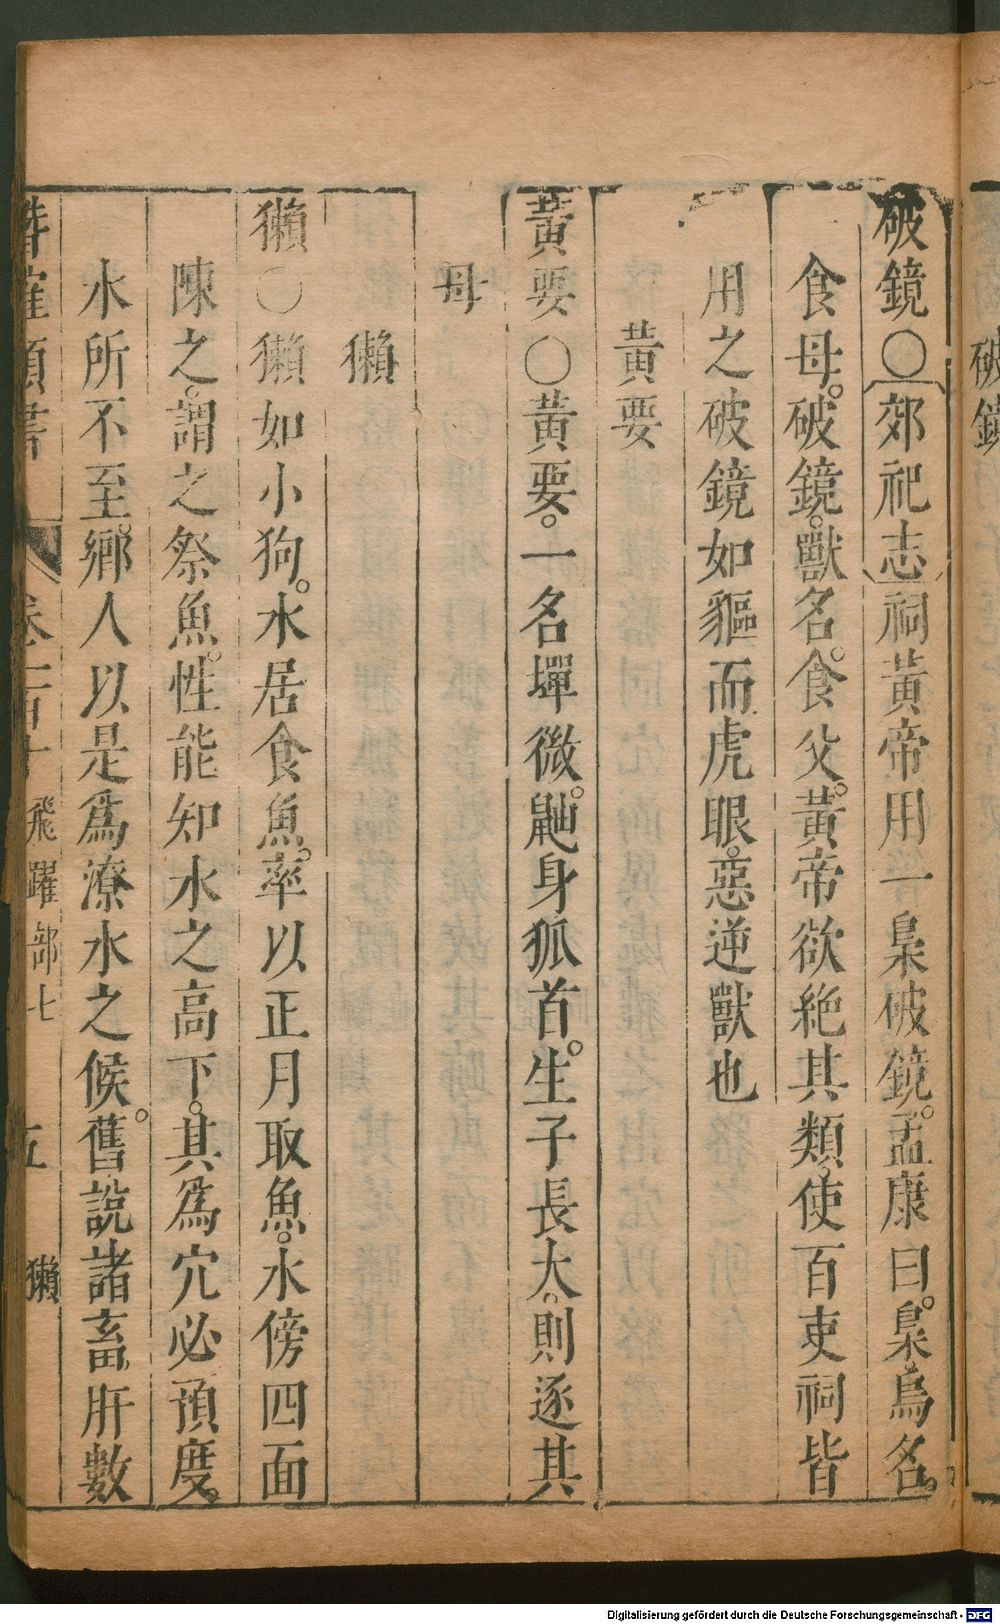 破鏡
破鏡○郊祀志祠黃帝用一梟破鏡。孟康曰。梟鳥名。
食母。破鏡。獸名。食父。黃帝欲絶其類。使百吏祠皆
用之破鏡如貙而虎眼。惡逆獸也
黃要
黃要○黃要。一名墠微。鼬身狐首。生子長大。則逐其
母
獺
獺○獺如小狗。水居食魚。率以正月取魚。水傍四面
陳之。謂之祭魚。性能知水之高下。其爲穴必預度。
水所不至。鄉人以是爲潦水之候。舊説諸畜肝數
潛確類書 卷一百十 飛躍部七 五 獺
Digitalisierung gefördert durch die Deutsche Forschungsgemeinschaft - DFG